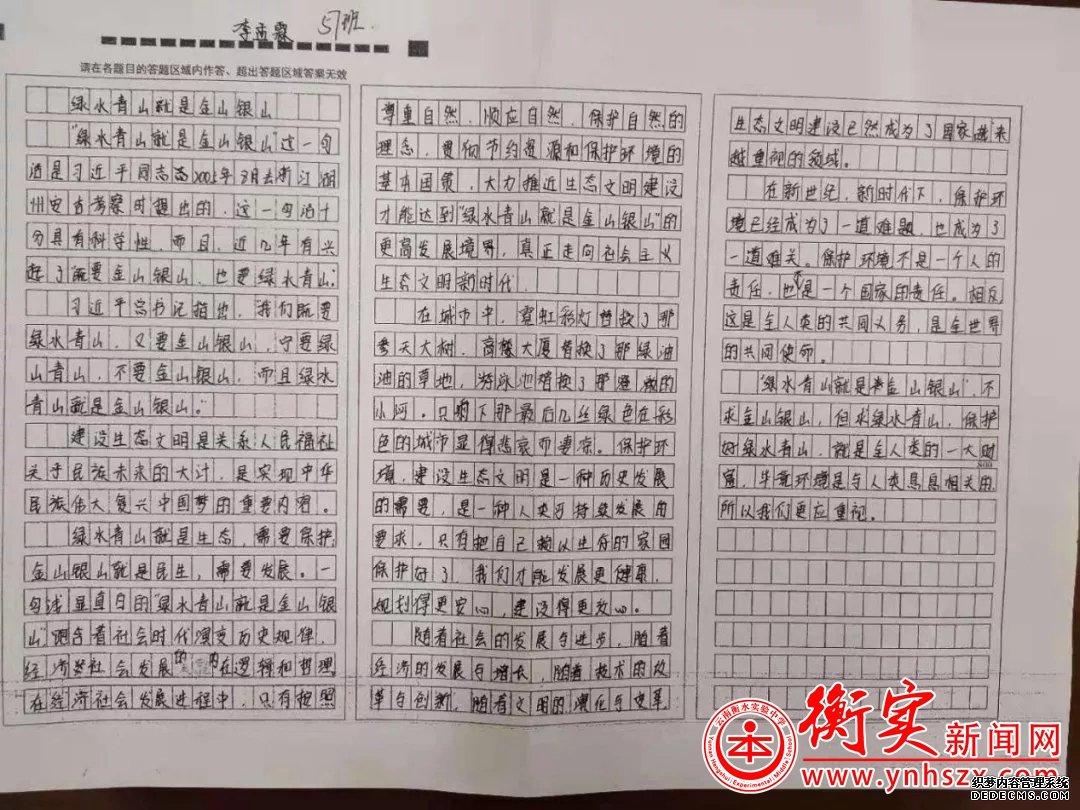 李 霖 57班
请在各题目的答题区域内作答、超出答题区域答案无效
绿水青山就是金山银山
“绿水青山就是金山银山”这一句
话是习近平同志于2005年8月去浙江湖
州安吉考察时提出的,这一句话十
分具有科学性,而且,近几年有兴
起了既要金山银山,也要绿水青山。
习近平总书记指出,我们既要
绿水青山,又要金山银山,宁要绿
山青山,不要金山银山,而且绿水
青山就是金山银山。”
建设生态文明是关系人民福祉
关乎民族未来的大计,是实现中华
民族伟大复兴中国梦的重要内容。
绿水青山就是生态,需要保护,
金山银山就是民生,需要发展。一
句浅显直白的“绿水青山就是金山银
山”蕴含着社会时代演变历史规律,
经济社会发展的内在逻辑和哲理。
在经济社会发展进程中,只有按照
尊重自然,顺应自然,保护自然的
理念,贯彻节约资源和保护环境的
基本国策,大力推近生态文明建设
才能达到“绿水青山就是金山银山”的
更高发展境界,真正走向社会主义
生态文明新时代。
在城市中,霓虹彩灯替换了那
参天大树,高楼大厦替换了那绿油
油的草地,游泳池替换了那澄澈的
小河。只剩下那最后几丝绿色在彩
色的城市显得悲哀而凄凉。保护环
境,建设生态文明是一种历史发展
的需要,是一种人类可持续发展的
要求,只有把自己赖以生存的家园
保护好了,我们才能发展更健康,
规划得更安心,建设得更放心。
随着社会的发展与进步,随着
经济的发展与增长,随着技术的改
革与创新,随着文明的演化与变革,
生态文明建设已然成为了国家越来
越重视的领域。
在新世纪,新时代下,保护环
境已经成为了一道难题,也成为了
一道难关。保护环境不是一个人的
责任,也不是一个国家的责任。相反
这是全人类的共同义务,是全世界
的共同使命。
“绿水青山就是金山银山”,不
求金山银山,但求绿水青山,保护
好绿水青山,就是全人类的一大财
800
富,毕竟环境是与人类息息相关的,
所以我们更应重视。
云南衡水实验中学
本
Yunnan Hengshui Experimental Middle School
衡实新闻网
www.ynhszx.com
织梦内容管理系统
DEDECMS.COM